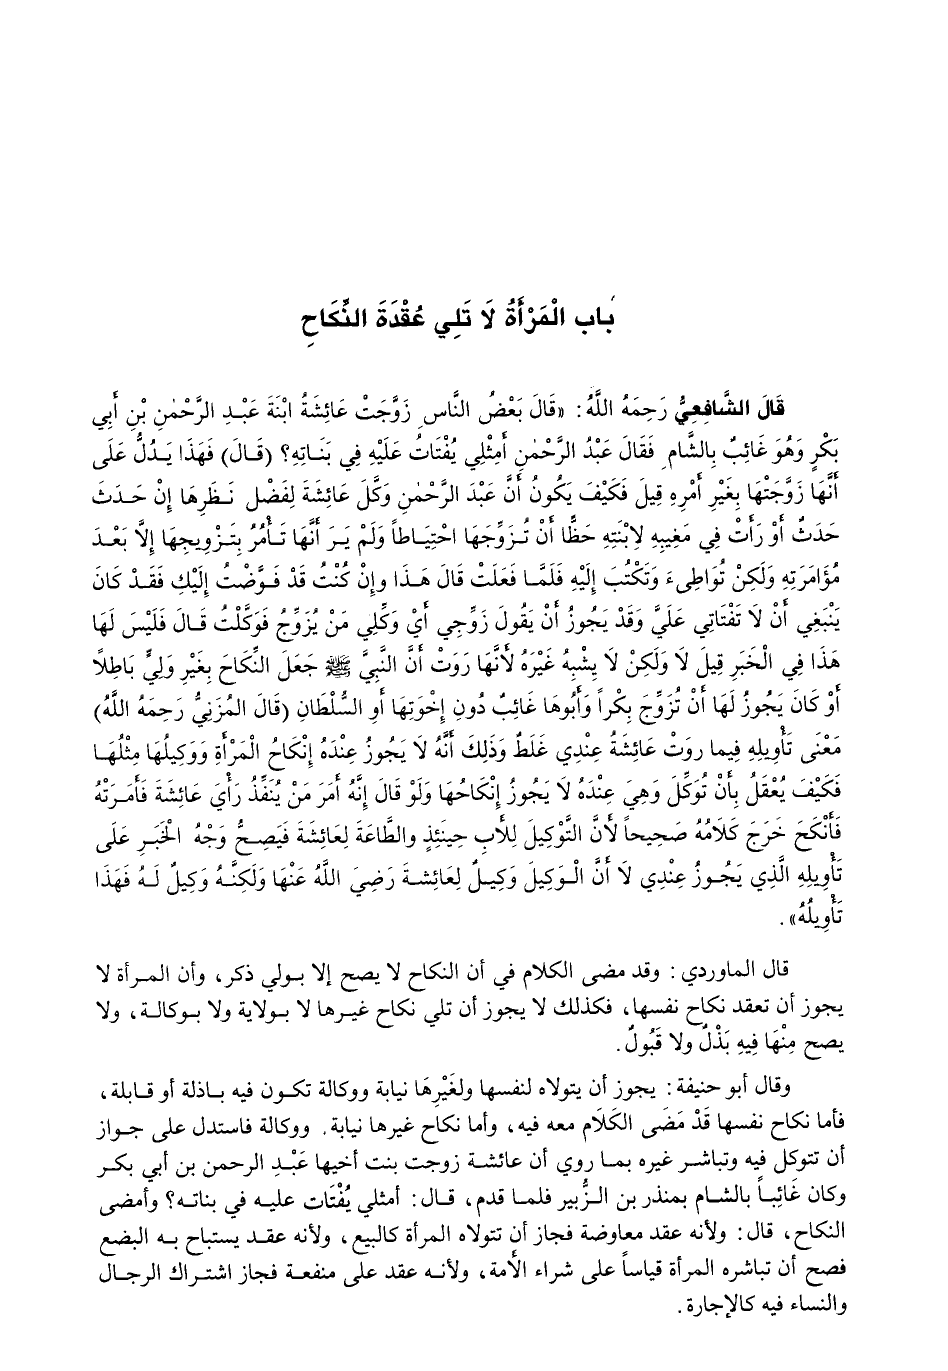 بَاب الْمَرْأَةُ لَا تَلِي عُقْدَةَ النِّكَاحِ
قَالَ الشَّافِعِيُّ رَحِمَهُ اللَّهُ: «قَالَ بَعْضُ النَّاسِ زَوَّجَتْ عَائِشَةُ ابْنَةَ عَبْدِ الرَّحْمٰنِ بْنِ أَبِي
بَكْرٍ وَهُوَ غَائِبٌ بِالشَّامِ فَقَالَ عَبْدُ الرَّحْمٰنِ أَمِثْلِي يُفْتَاتُ عَلَيْهِ فِي بَنَاتِهِ؟ (قَالَ) فَهَذَا يَدُلُّ عَلَى
أَنَّهَا زَوَّجَتْهَا بِغَيْرِ أَمْرِهِ قِيلَ فَكَيْفَ يَكُونُ أَنَّ عَبْدَ الرَّحْمٰنِ وَكَّلَ عَائِشَةَ لِفَضْلِ نَظَرِهَا إِنْ حَدَثَ
حَدَثٌ أَوْ رَأَتْ فِي مَغِيبِهِ لِابْنَتِهِ حَظًّا أَنْ تُزَوِّجَهَا احْتِيَاطاً وَلَمْ يَرَ أَنَّهَا تَأْمُرُ بِتَزْوِيجِهَا إِلَّا بَعْدَ
مُؤَامَرَتِهِ وَلَكِنْ تُوَاطِىءَ وَتَكْتُبَ إِلَيْهِ فَلَمَّا فَعَلَتْ قَالَ هَذَا وإِنْ كُنْتُ قَدْ فَوَّضْتُ إِلَيْكِ فَقَدْ كَانَ
يَنْبَغِي أَنْ لَا تَفْتَاتِي عَلَيَّ وَقَدْ يَجُوزُ أَنْ يَقُولَ زَوِّجِي أَيْ وَكِّلِي مَنْ يُزَوِّجُ فَوَكَّلْتُ قَالَ فَلَيْسَ لَهَا
هَذَا فِي الْخَبَرِ قِيلَ لَا وَلَكِنْ لَا يِشْبِهُ غَيْرَهُ لأَنَّهَا رَوَتْ أَنَّ النَّبِيَّ ﷺ جَعَلَ النِّكَاحَ بِغَيْرِ وَلِيٍّ بَاطِلاً
أَوْ كَانَ يَجُوزُ لَهَا أَنْ تُزَوِّجَ بِكْراً وَأَبُوهَا غَائِبٌ دُونِ إِخْوَتِهَا أَوِ السُّلْطَانِ (قَالَ المُزَنِيُّ رَحِمَهُ اللَّهُ)
مَعْنَى تَأْوِيلِهِ فِيما رَوَتْ عَائِشَةُ عِنْدِي غَلَطٌ وَذَلِكَ أَنَّهُ لَا يَجُوزُ عِنْدَهُ إِنْكَاحُ الْمَرْأَةِ وَوَكِيلُهَا مِثْلُهَا
فَكَيْفَ يُعْقَلُ بِأَنْ تُوَكِّلَ وَهِيَ عِنْدَهُ لَا يَجُوزُ إِنْكَاحُهَا وَلَوْ قَالَ إِنَّهُ أَمَرَ مَنْ يُنَفِّذُ رَأْيَ عَائِشَةَ فَأَمَرَتْهُ
فَأَنْكَحَ خَرَجَ كَلَامُهُ صَحِيحاً لأَنَّ التَّوْكِيلَ لِلأَبِ حِينَئِذٍ والطَّاعَةَ لِعَائِشَةَ فَيَصِحُّ وَجْهُ الْخَبَرِ عَلَى
تَأْوِيلِهِ الَّذِي يَجُوزُ عِنْدِي لَا أَنَّ الْوَكِيلَ وَكِيلٌ لِعَائِشَةَ رَضِيَ اللَّهُ عَنْهَا وَلَكِنَّهُ وَكِيلٌ لَهُ فَهَذَا
تَأْوِيلُهُ».
قال الماوردي: وقد مضى الكلام في أن النكاح لا يصح إلا بولي ذكر، وأن المرأة لا
يجوز أن تعقد نكاح نفسها، فكذلك لا يجوز أن تلي نكاح غيرها لا بولاية ولا بوكالة، ولا
يصح مِنْهَا فِيهِ بَذْلٌ ولا قَبُولٌ.
وقال أبو حنيفة: يجوز أن يتولاه لنفسها ولغَيْرِهَا نيابة ووكالة تكون فيه باذلة أو قابلة،
فأما نكاح نفسها قَدْ مَضَى الكَلَام معه فيه، وأما نكاح غيرها نيابة. ووكالة فاستدل على جواز
أن تتوكل فيه وتباشر غيره بما روي أن عائشة زوجت بنت أخيها عَبْدِ الرحمن بن أبي بكر
وكان غَائِباً بالشام بمنذر بن الزُّبير فلما قدم، قال: أمثلي يُفْتَات عليه في بناته؟ وأمضى
النكاح، قال: ولأنه عقد معاوضة فجاز أن تتولاه المرأة كالبيع، ولأنه عقد يستباح به البضع
فصح أن تباشره المرأة قياساً على شراء الأمة، ولأنه عقد على منفعة فجاز اشتراك الرجال
والنساء فيه كالإجارة.